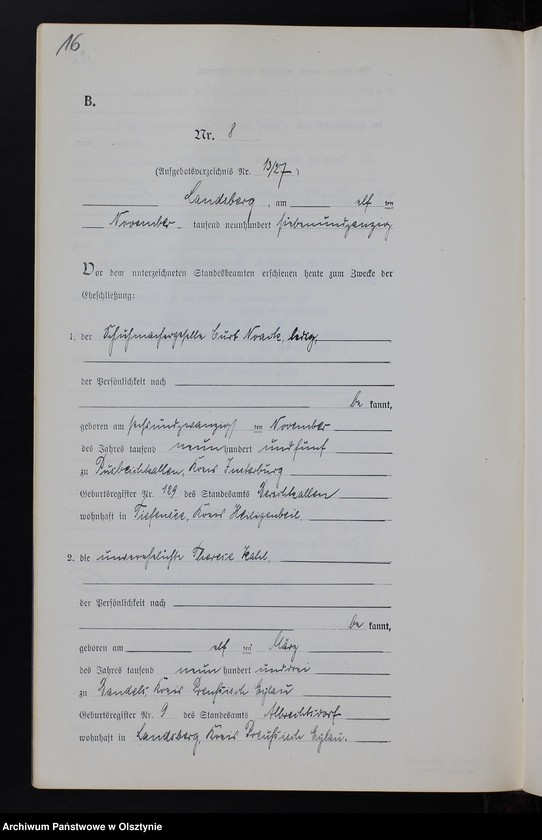 16
B.
Nr. 8
(Aufgebotsverzeichnis Nr. 13/27)
Landsberg, am elf ten
November tausend neunhundert siebenundzwanzig
Vor dem unterzeichneten Standesbeamten erschienen heute zum Zwecke der
Eheschließung:
1. der Schuhmachergeselle Curt Noack, ledig,
der Persönlichkeit nach
be kannt,
geboren am sechsundzwanzigsten November
des Jahres tausend neun hundert und fünf
zu Kreis Insterburg
Geburtsregister Nr. 129 des Standesamts
wohnhaft in Tiefensee, Kreis Heiligenbeil.
2. die unverehelichte Therese
der Persönlichkeit nach
be kannt,
geboren am elf ten März
des Jahres tausend neun hundert und drei
zu Kreis Preußisch Eylau
Geburtsregister Nr. 9 des Standesamts Albrechtsdorf
wohnhaft in Landsberg, Kreis Preußisch Eylau.
Archiwum Państwowe w Olsztynie